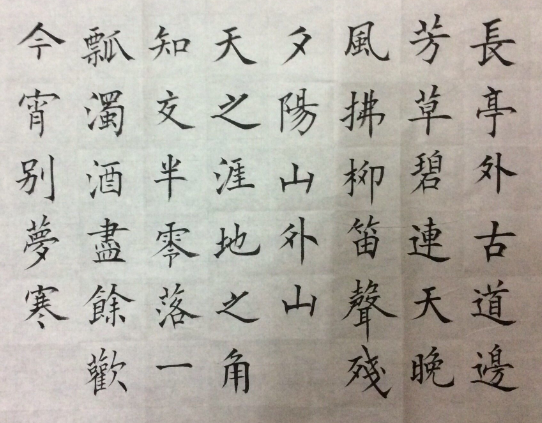 長亭外古道邊
芳草碧連天晚
風拂柳笛聲殘
夕陽山外山
天之涯地之角
知交半零落一
瓢濁酒盡餘歡
今宵别夢寒